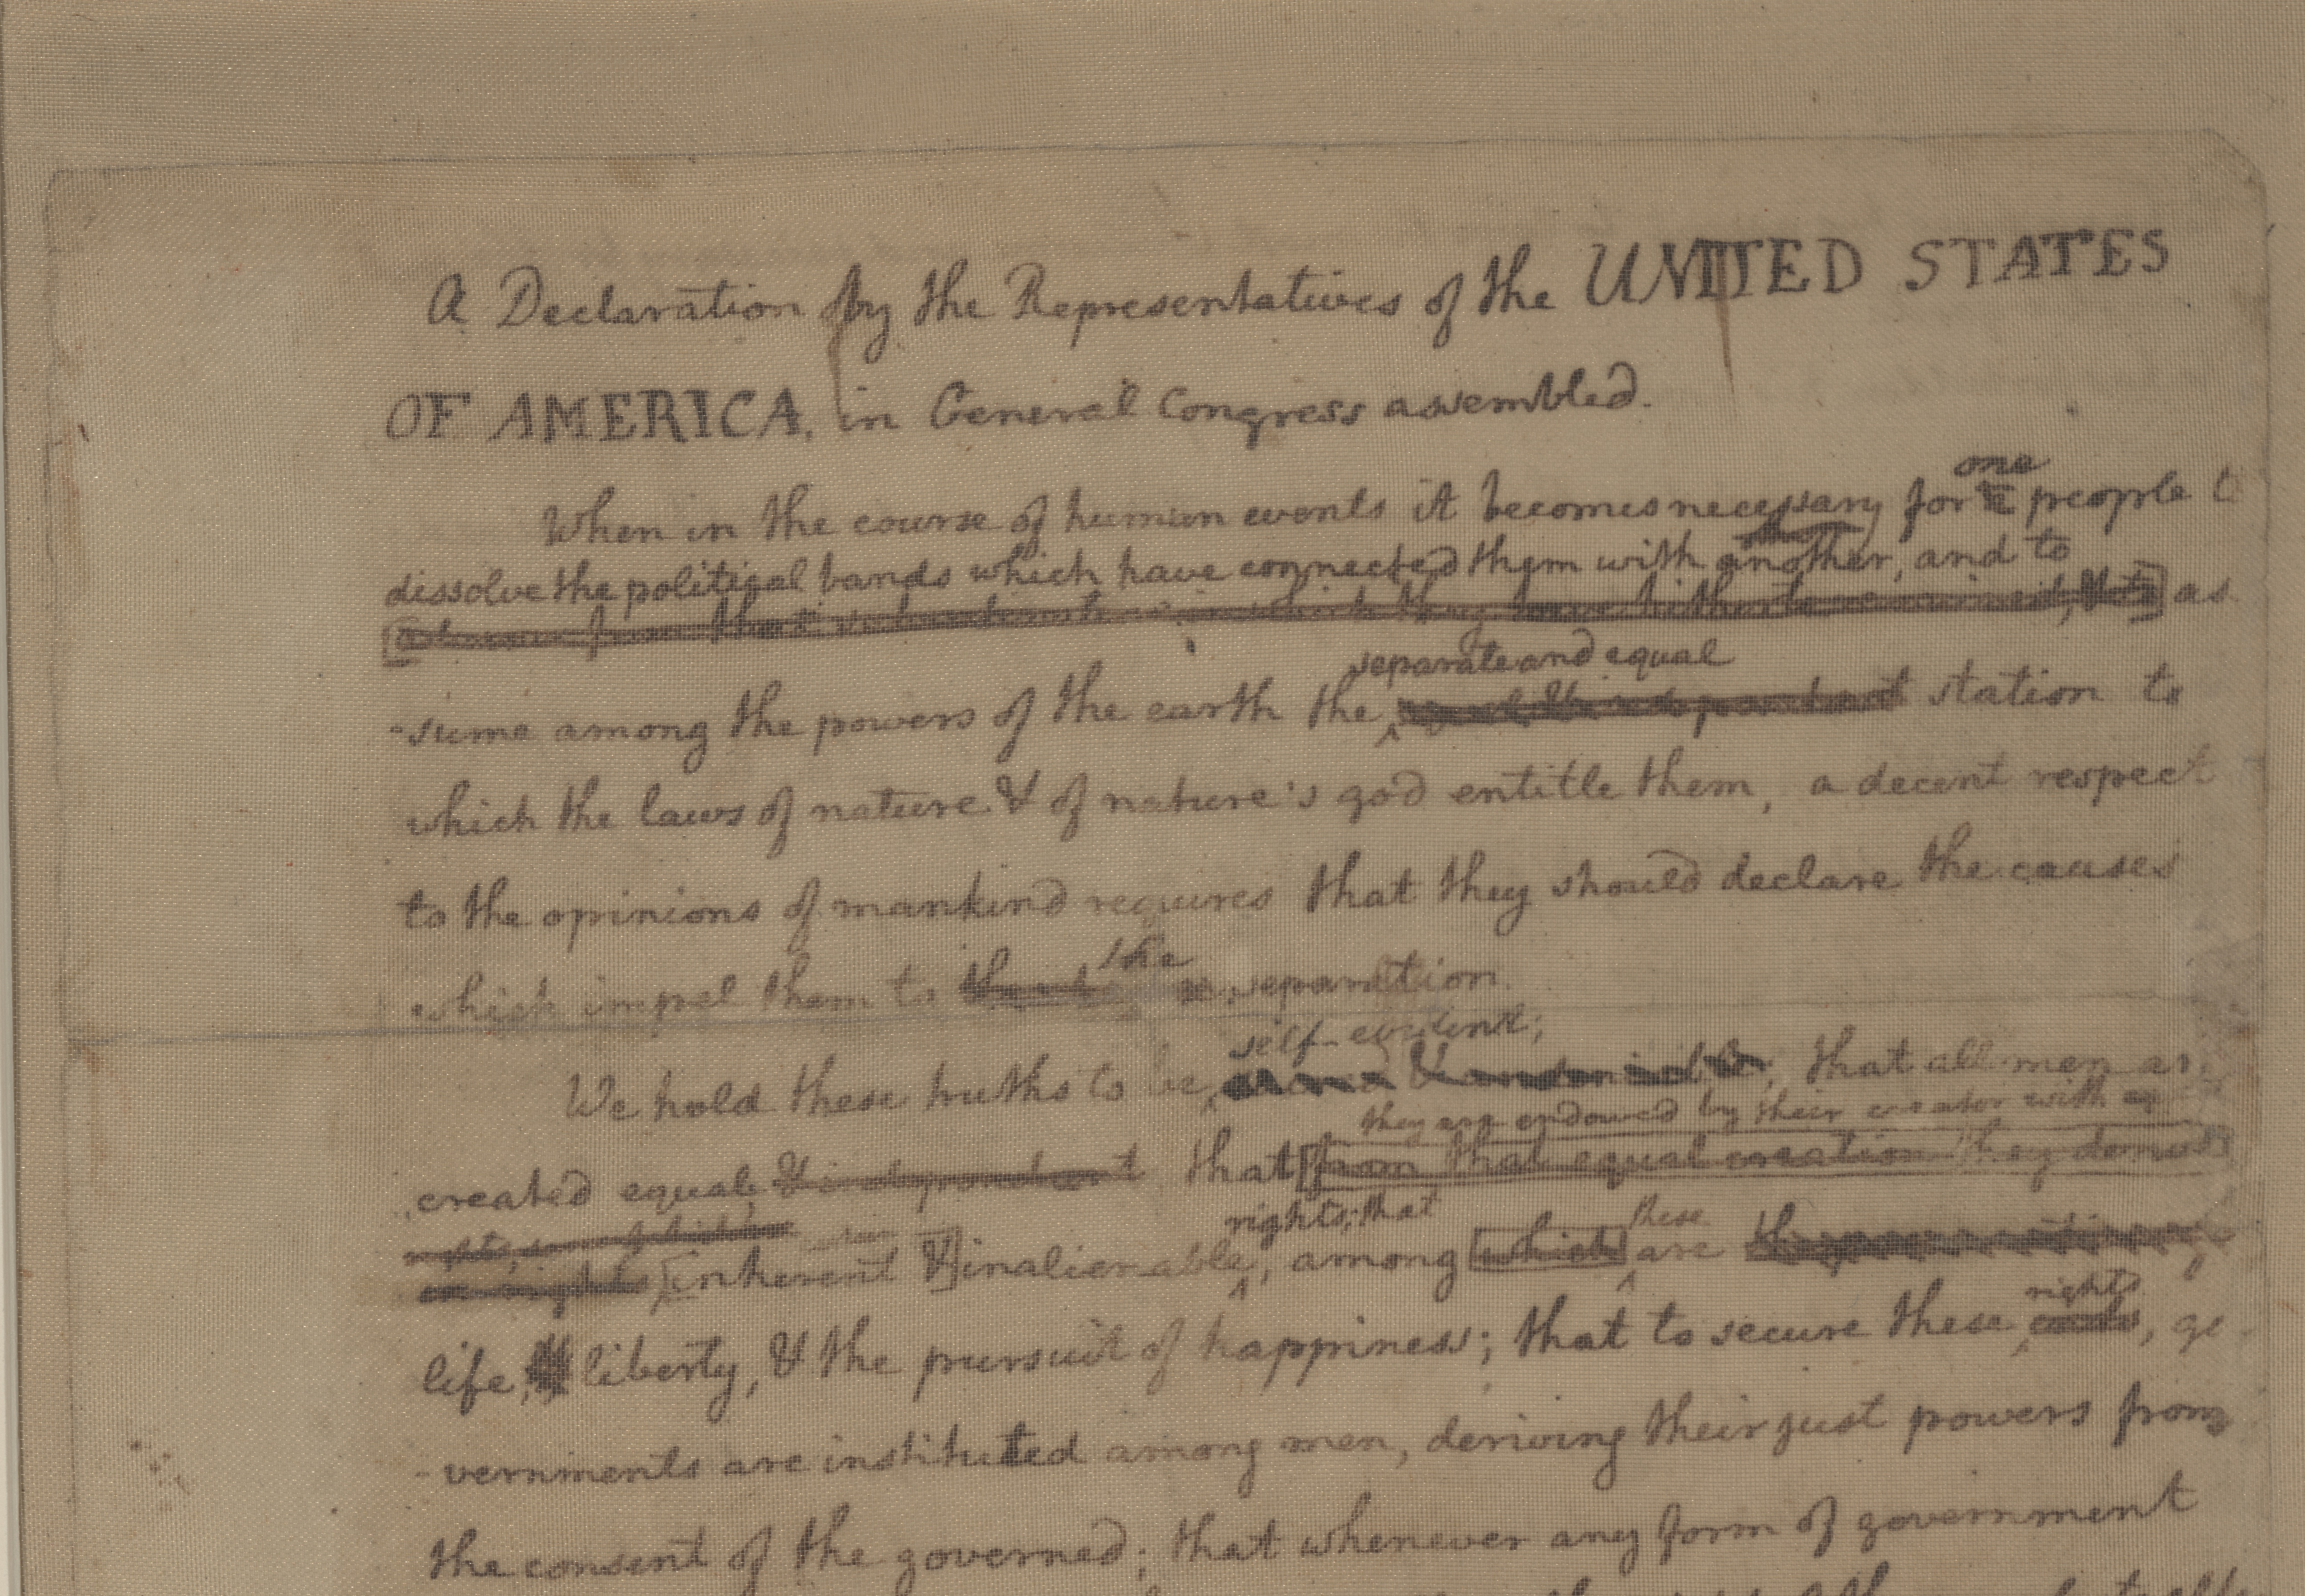 A Declaration by the Representatives of the UNITED STATES
OF AMERICA, in General Congress assembled.
one
When in the course of human events it becomes necessary for a people t
dissolve the political bands which have connected them with another, and to
which they have hitherto remained, & to] as
separate and equal
-sume among the powers of the earth the equal & independant station to
which the laws of nature & of nature's god entitle them, a decent respect
to the opinions of mankind requires that they should declare the causes
the
which impel them to separation.
self-evident;
We hold these truths to be, & undeniable, that all men ar
they are endowed by their creator with
created equal, & independant that [from that equal creation they
rights; that
rights, some of which these
rights [inherent &] inalienable, among [which] are
rights
life, liberty, & the pursuit of happiness; that to secure these ends, go
-vernments are instituted among men, deriving their just powers from
the consent of the governed; that whenever any form of government